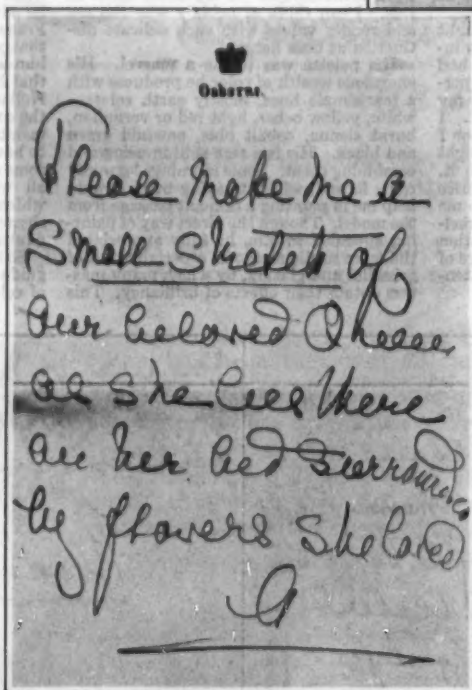 Osborne.
Please make me a
small sketch of
our beloved Queen
as she lies there
on her bed surrounded
by flowers she loved
A